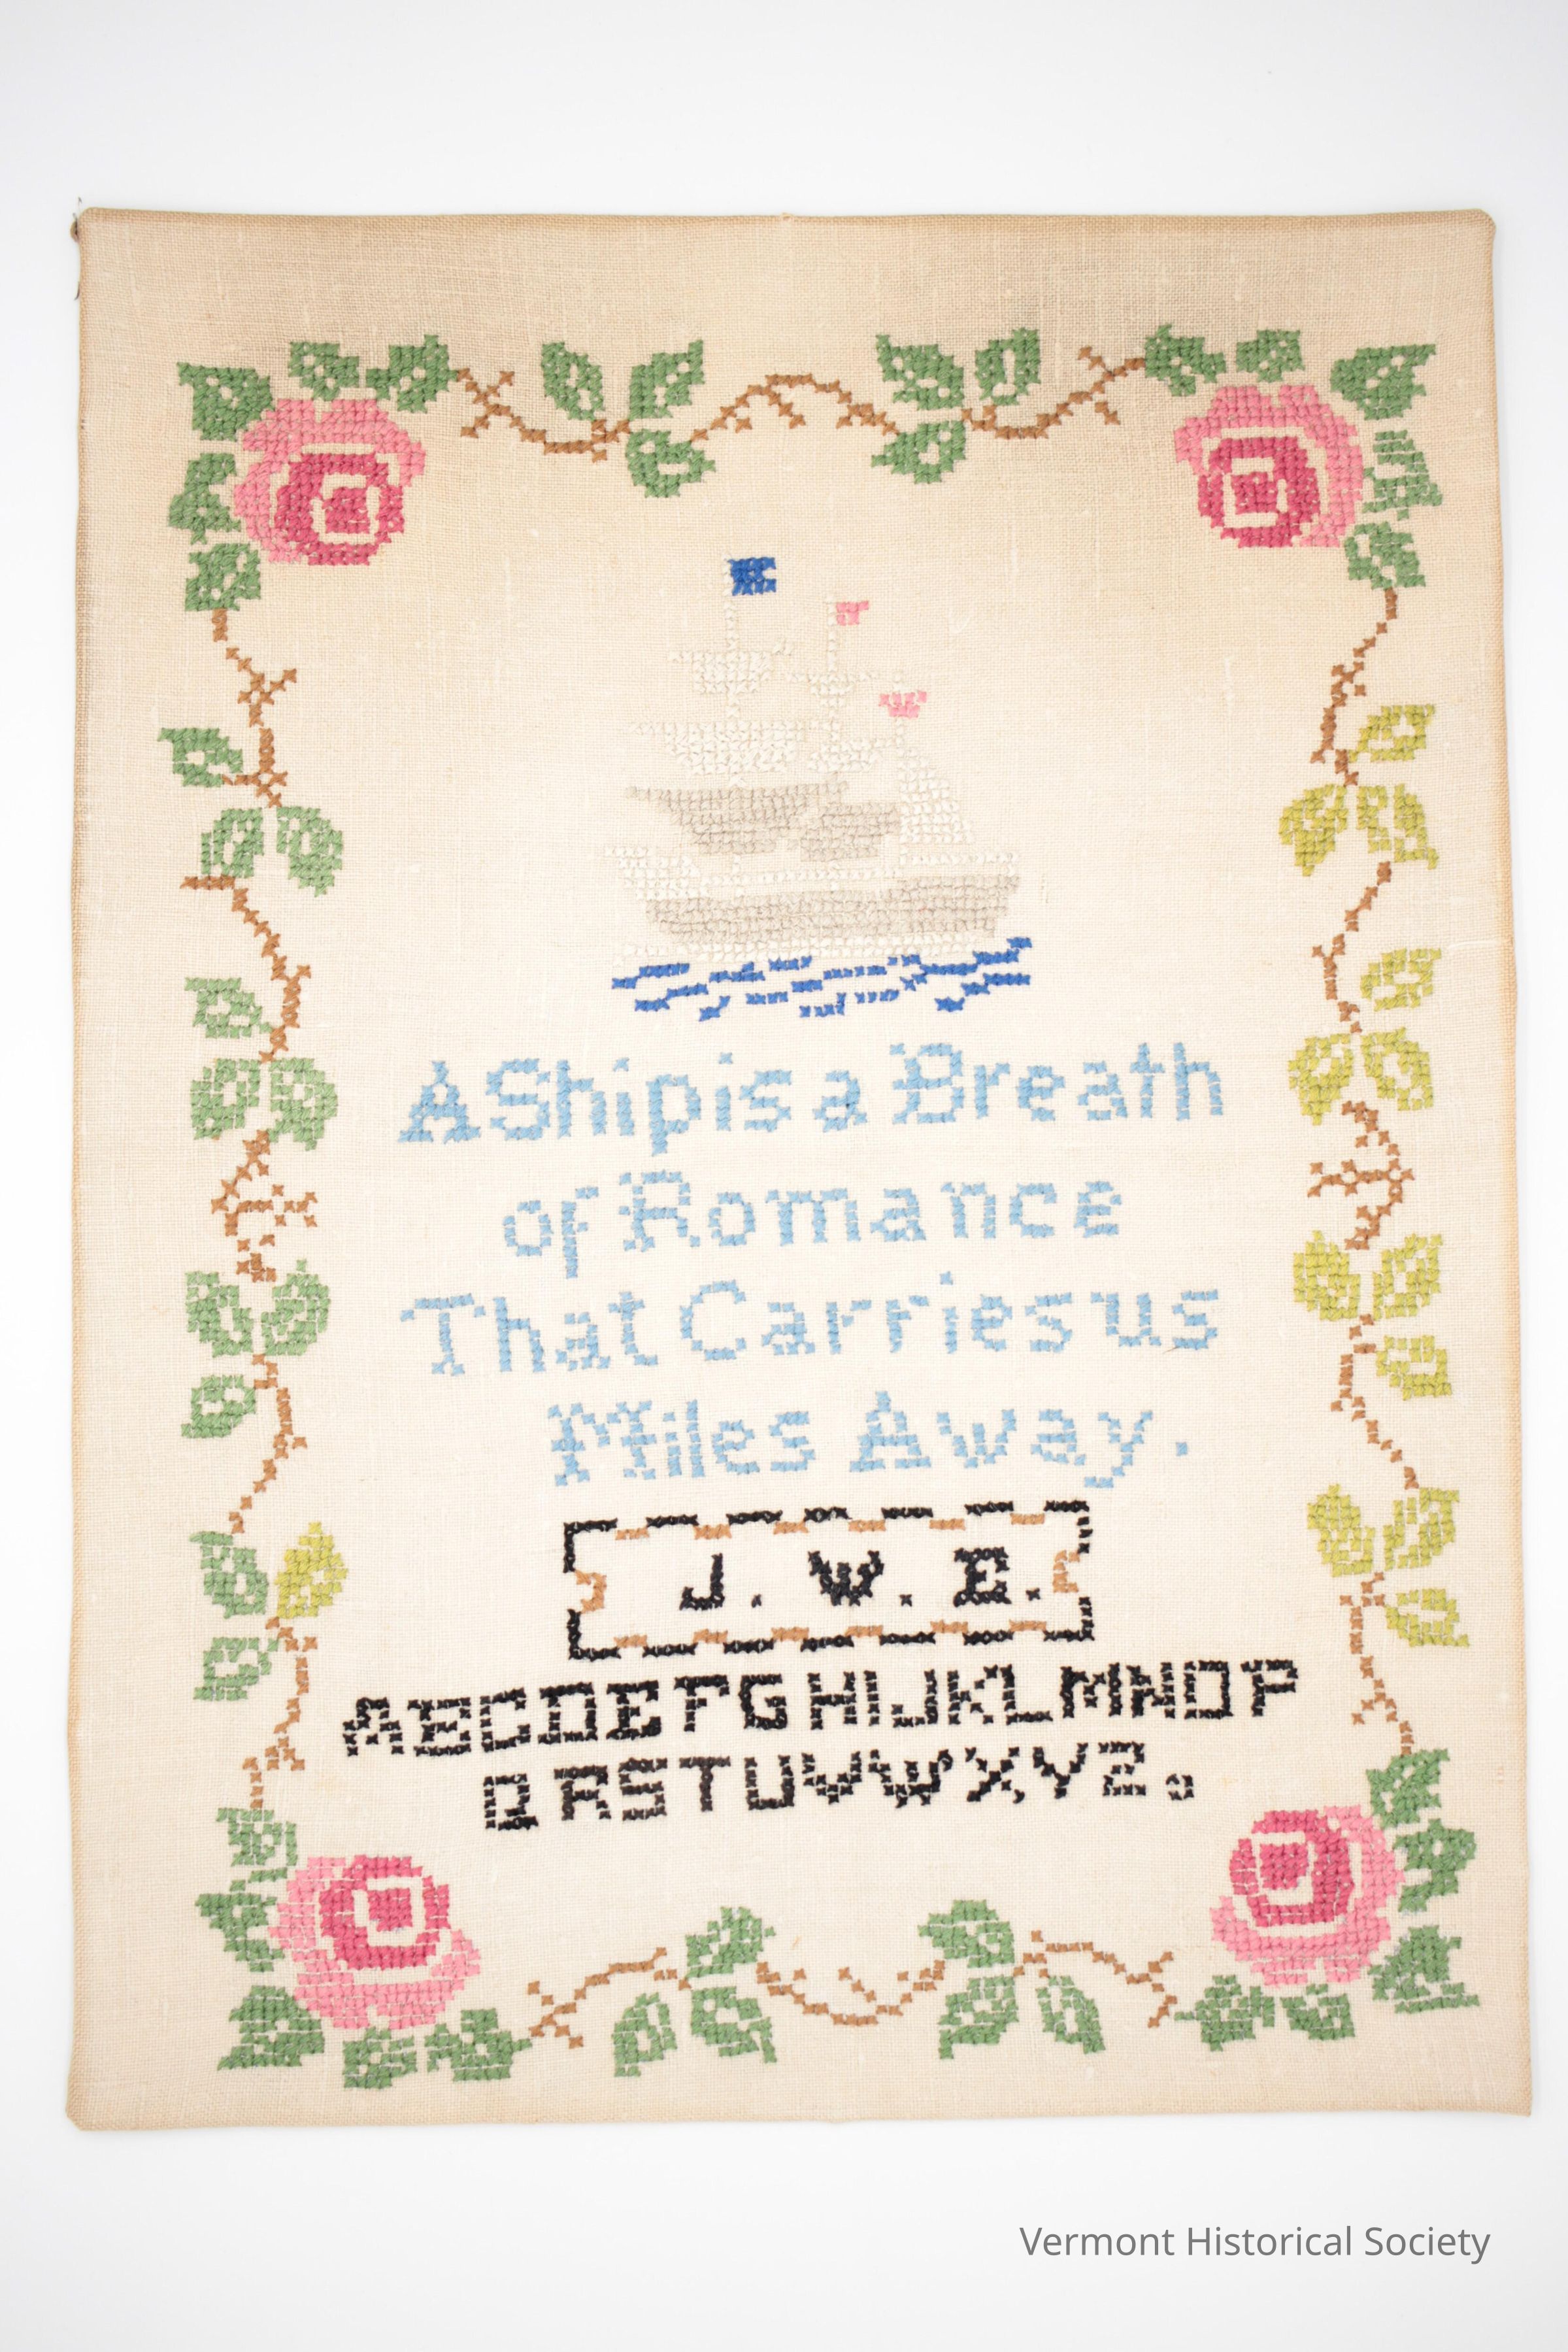 A Ship is a Breath
of Romance
That Carries us
Miles Away.
J. W. E.
ABCDEFGHIJKLMNOP
QRSTUVWXYZ.
Vermont Historical Society